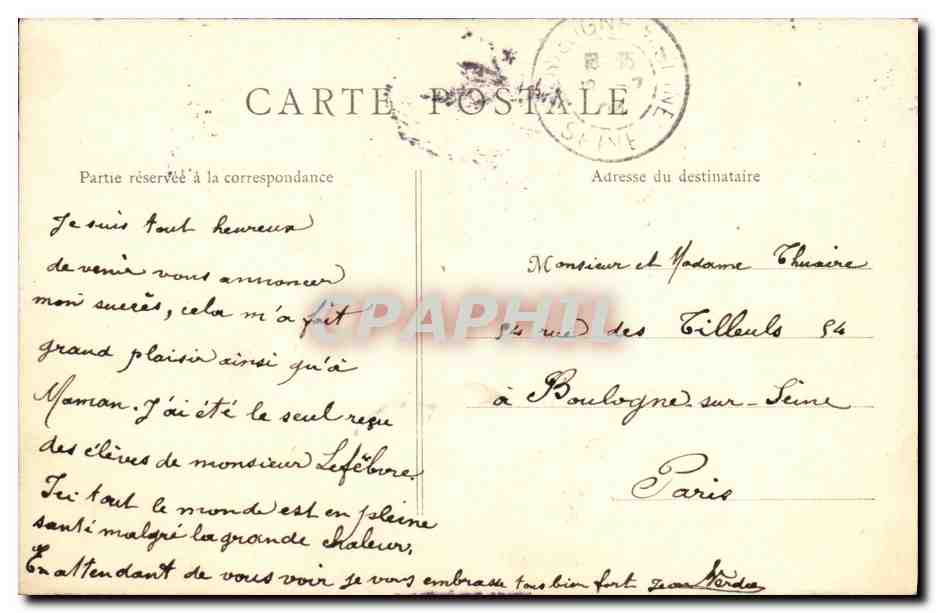 CARTE POSTALE
BOULOGNE SEINE
SEINE
Partie réservée à la correspondance
Je suis tout heureux
de venir vous annoncer
mon succès, cela m'a fait
grand plaisir ainsi qu'à
Maman. J'ai été le seul reçu
des élèves de monsieur Lefèbvre.
Ici tout le monde est en pleine
santé malgré la grande chaleur.
En attendant de vous voir je vous embrasse tous bien fort Jean
Adresse du destinataire
Monsieur et Madame Thuaire
54 rue des Tilleuls 54
à Boulogne-sur-Seine
Paris
CPAPHIL